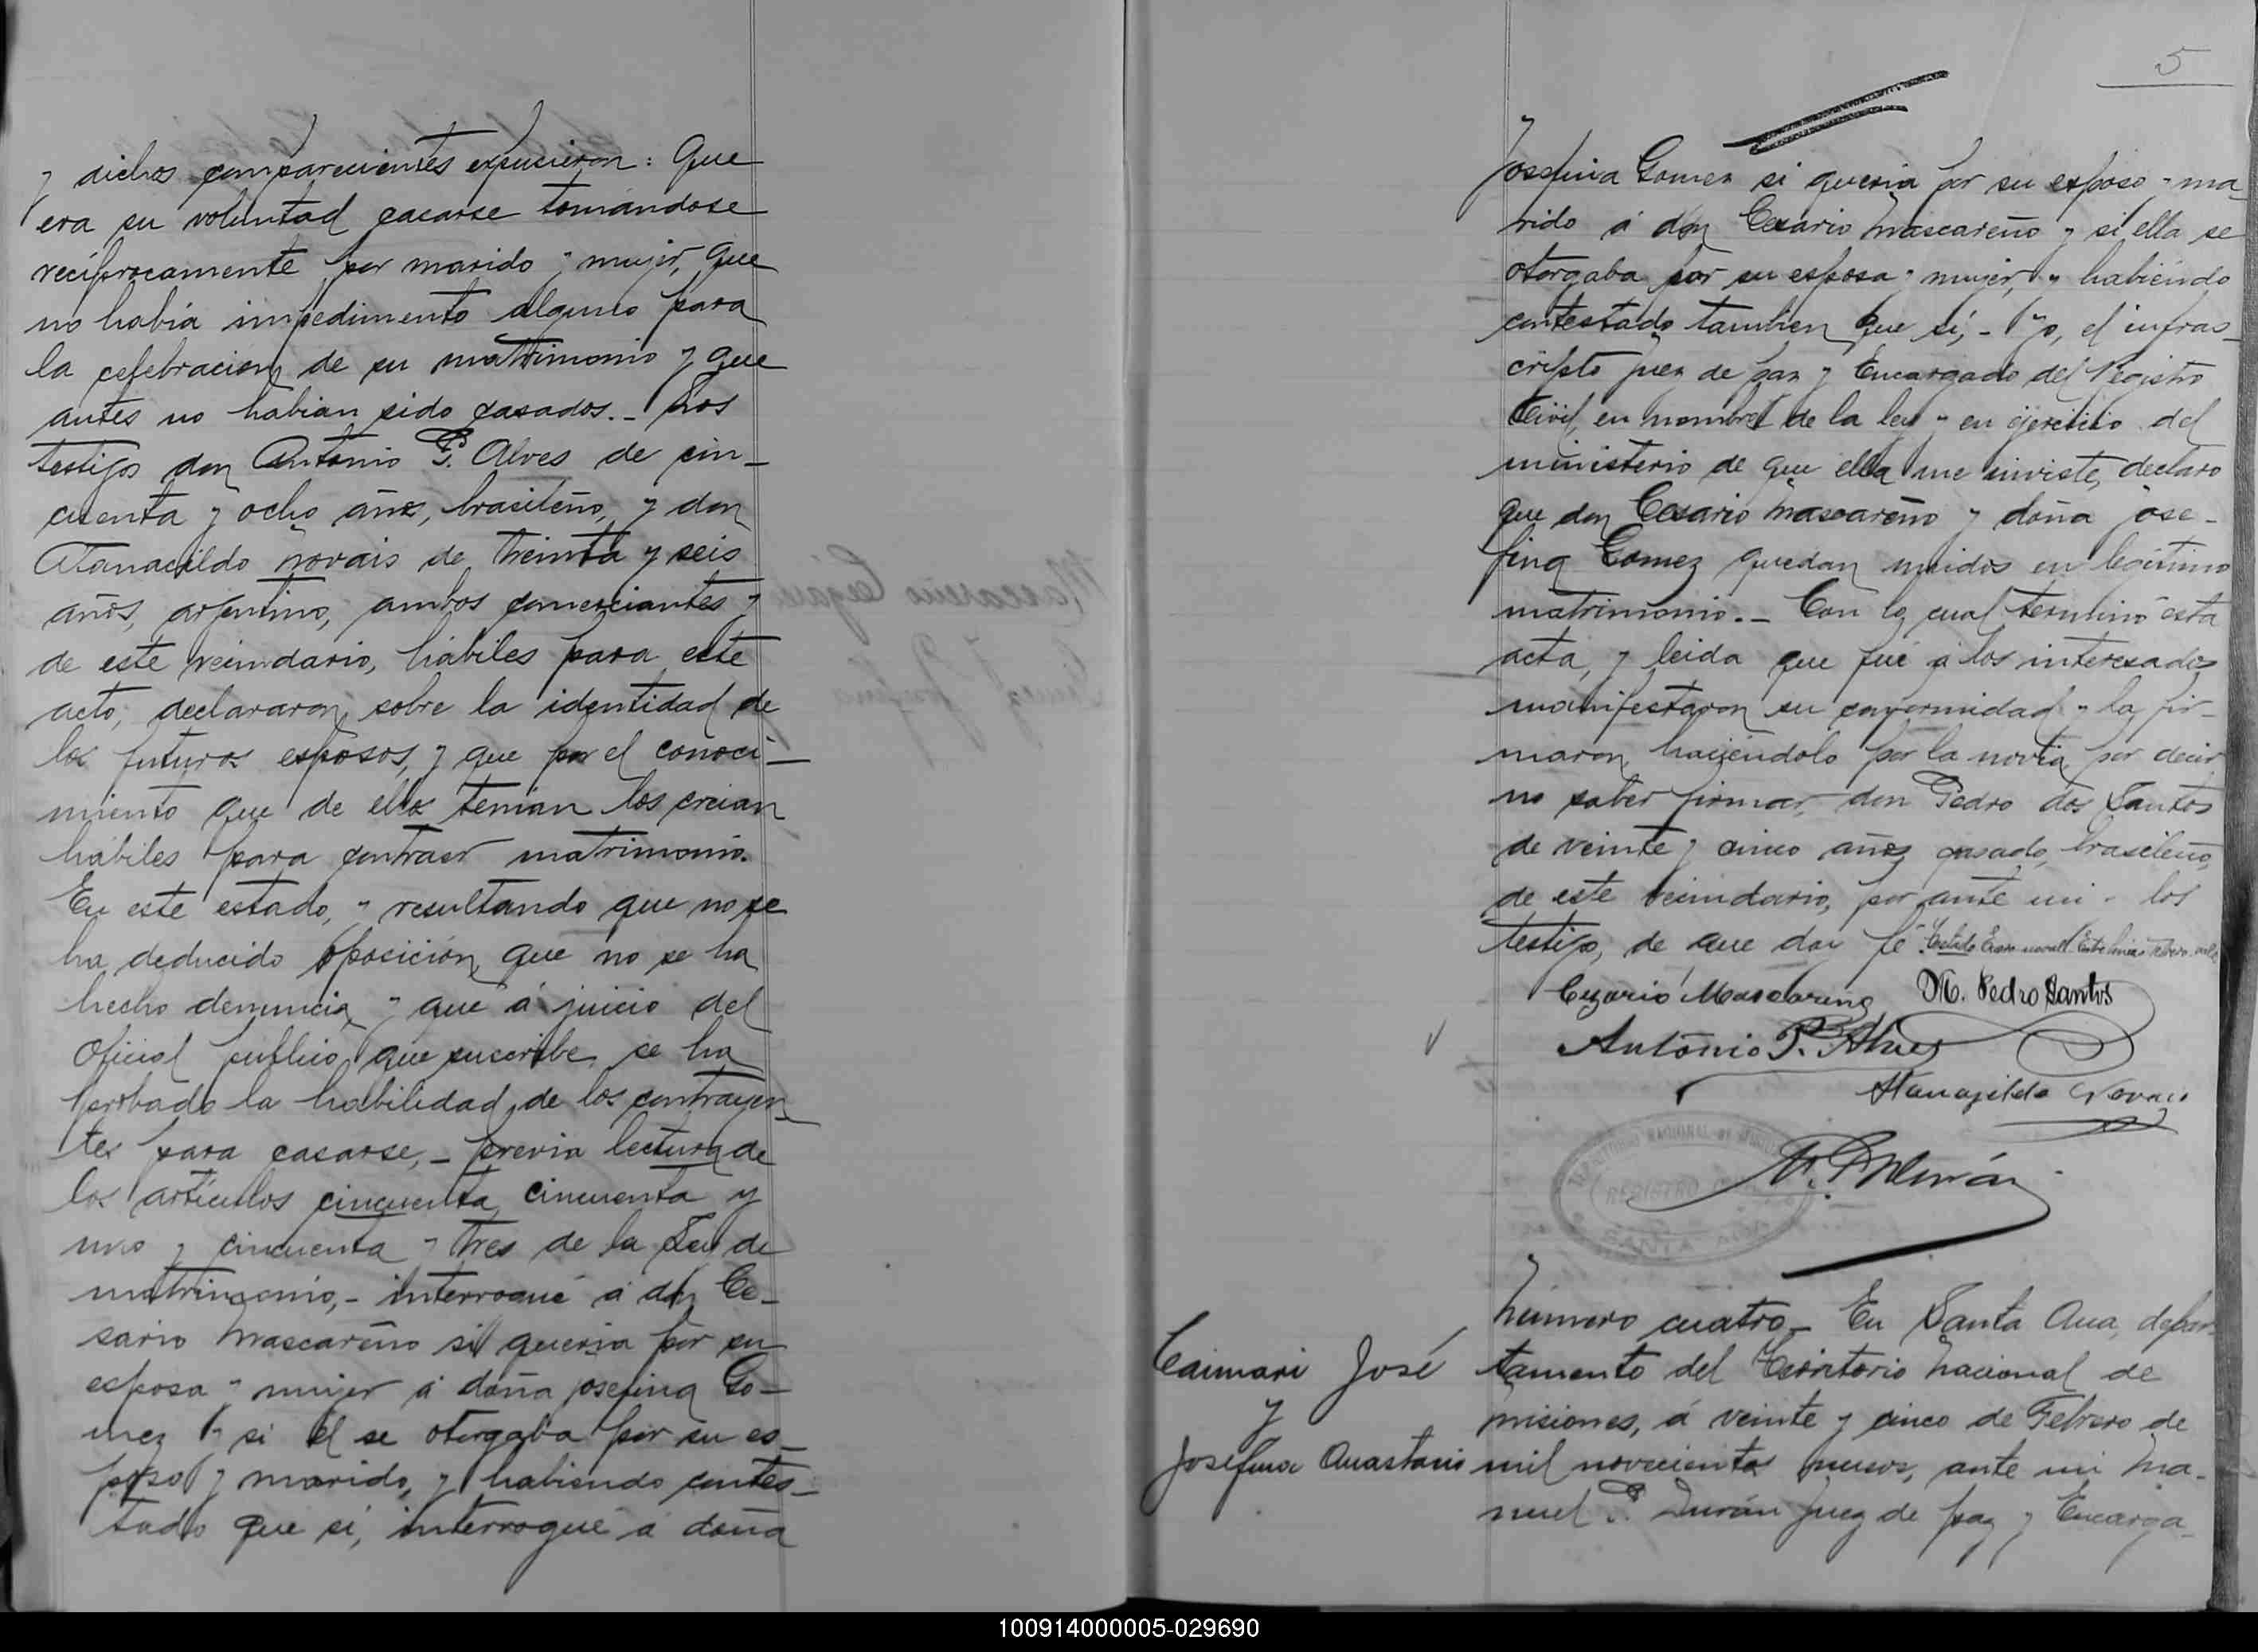 y dichos comparecientes expusieron: Que
era su voluntad casarse tomándose
recíprocamente por marido y mujer, que
no había impedimento alguno para
la celebracion de su matrimonio y que
antes no habian sido casados._ Los
testigos don Antonio P. Alves de cin_
cuenta y ocho años, brasileño, y don
Atanacildo Novais de treinta y seis
años, argentino, ambos comerciantes y
de este vecindario, hábiles para este
acto, declararon sobre la identidad de
los futuros esposos, y que por el conoci_
miento que de ellos tenian los creian
hábiles para contraer matrimonio.
En este estado, y resultando que no se
ha deducido oposición, que no se ha
hecho denuncia, y que á juicio del
Oficial publico que suscribe, se ha
probado la habilidad de los contrayen_
tes para casarse, _ previa lectura de
los artículos cincuenta, cincuenta y
uno y cincuenta y tres de la Ley de
matrimonio, _ interrogué á don Ce_
sario Mascareño si queria por su
esposa y mujer á doña Josefina Go_
mez y si él se otorgaba por su es_
poso y marido, y habiendo contes_
tado que sí, interrogué á doña
5
Josefina Gomez si queria por su esposo y ma
rido á don Cesario Mascareño y si ella se
otorgaba por su esposa y mujer, y habiendo
contestado tambien que sí, _ Yo, el infras_
cripto Juez de Paz y Encargado del Registro
Civil, en nombre de la ley y en ejercicio del
ministerio de que ella me inviste, declaro
que don Cesario Mascareño y doña Jose_
fina Gomez quedan unidos en legítimo
matrimonio. _ Con lo cual terminó esta
acta, y leida que fué á los interesados
manifestaron su conformidad y la fir_
maron, haciéndolo por la novia, por decir
no saber firmar, don Pedro dos Santos
de veinte y cinco años, casado, brasileño,
de este vecindario, por ante mi y los
testigos, de que doy fé.
Cezario Mascareno M. Pedro Santos
Antonio P. Alves
Atanagildo Novais
REGISTRO
M. P. Durán
Número cuatro_ En Santa Ana, depar_
Caimari José
tamento del Territorio Nacional de
y
misiones, á veinte y cinco de Febrero de
Josefina Anastacio
mil novecientos nueve, ante mi Ma_
nuel P. Durán Juez de Paz y Encarga_
100914000005-029690